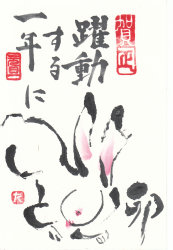 賀正
躍動
する
一年に
卯